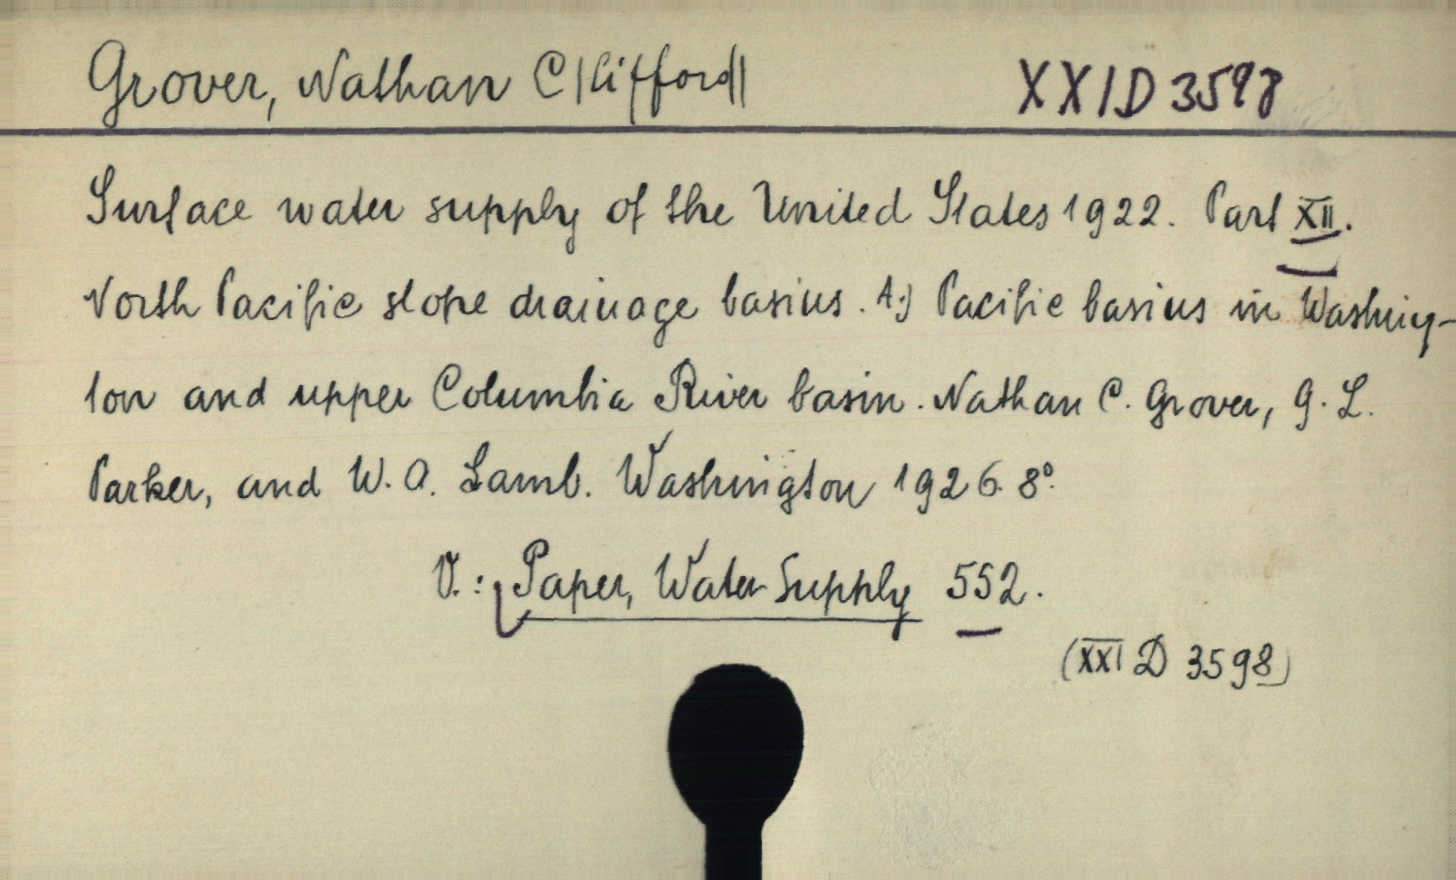 Grover, Nathan C|lifford|
XXI D 3598
Surface water supply of the United States 1922. Part XII.
North Pacific slope drainage basins. A.) Pacific basins in Washing-
ton and upper Columbia River basin. Nathan C. Grover, G. L.
Parker, and W. A. Lamb. Washington 1926. 8°.
V.: Paper, Water Supply 552.
(XXI D 3598)